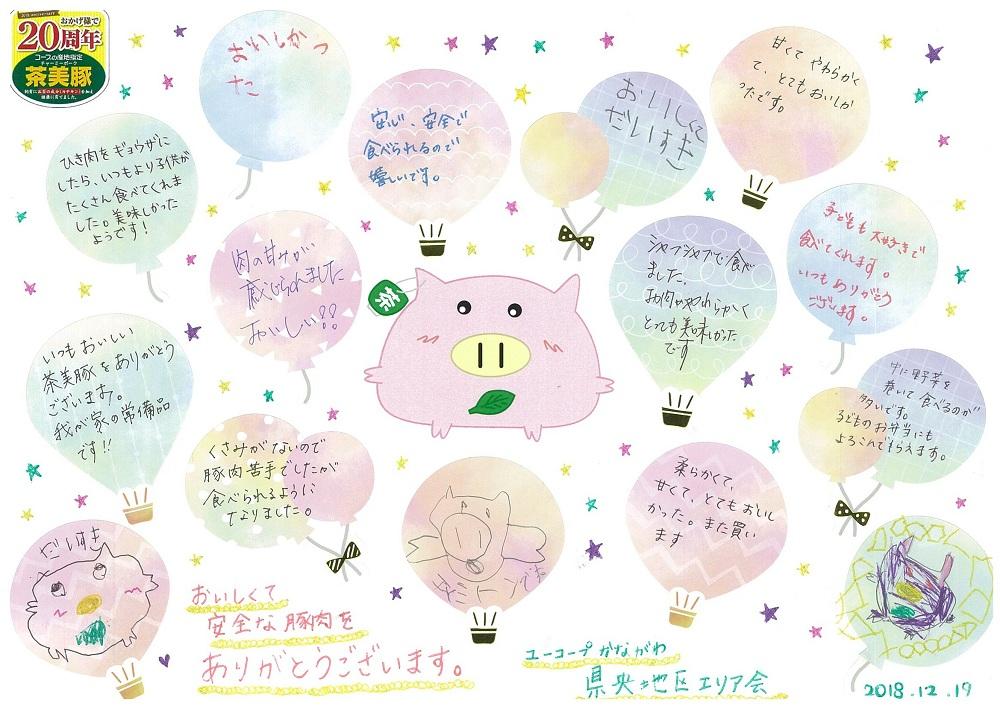 おかげ様で
20周年
コープの産地指定
チャーミーポーク
茶美豚
おいしかっ
た
安心、安全で
食べられるので
嬉しいです。
おいしくて
だいすき
甘くて やわらかく
て、とてもおいしか
ったです。
ひき肉をギョウザに
したら、いつもより子供が
たくさん食べてくれま
した。美味しかった
ようです!
肉の甘みが
感じられました
おいしい!!
茶
シャブシャブで食べ
ました。
お肉がやわらかく
とっても美味しかった
です
子どもも大好きで
食べてくれます。
いつもありがとう
ございます。
いつもおいしい
茶美豚をありがとう
ございます。
我が家の常備品
です!!
くさみがないので
豚肉苦手でしたが
食べられるように
なりました。
柔らかくて、
甘くて、とてもおいし
かった。また買い
ます
中に野菜を
巻いて食べるのが
多いです。
子どものお弁当にも
よろこんでもらえます。
だいすき
おいしくて
安全な豚肉を
ありがとうございます。
ユーコープかながわ
県央地区エリア会
2018.12.19